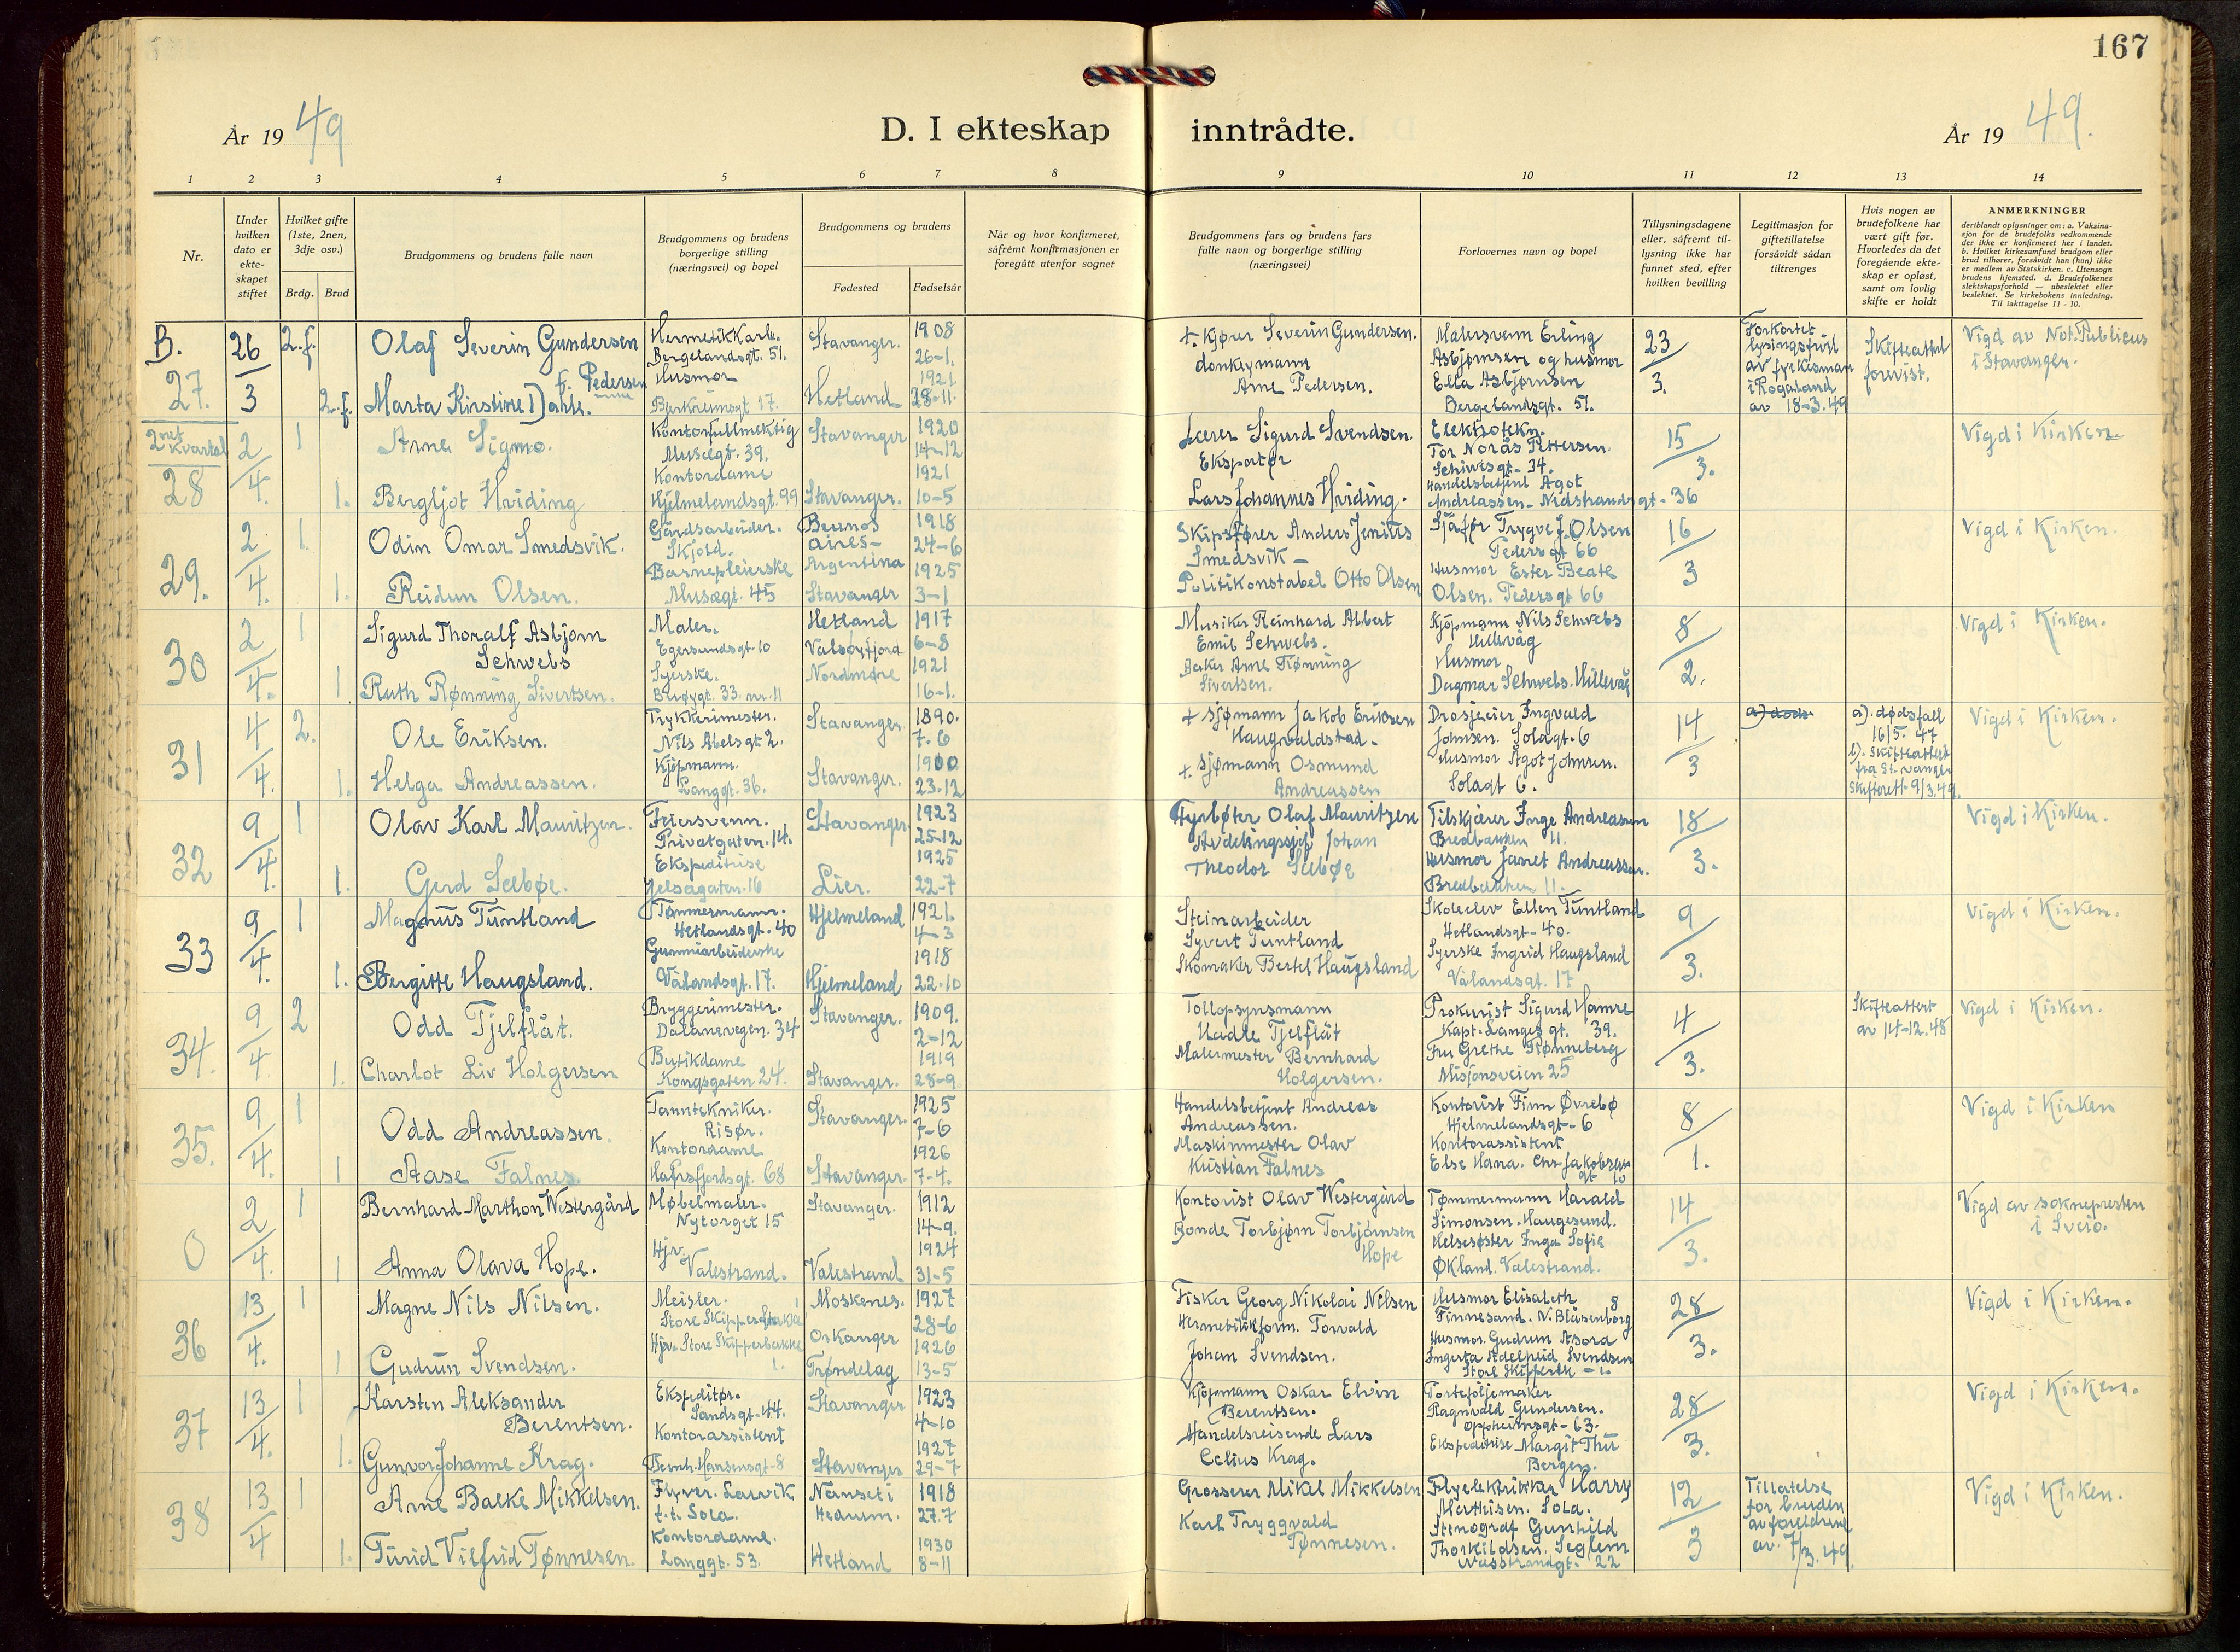 167
År 19 49
D. I ekteskap inntrådte.
År 19 49.
1 2 3 4 5 6 7 8 9 10 11 12 13 14
Nr.
Under
hvilken
dato er
ekte-
skapet
stiftet
Hvilket gifte
(1ste, 2nen,
3dje osv.)
Brdg.
Brud
Brudgommens og brudens fulle navn
Brudgommens og brudens
borgerlige stilling
(næringsvei) og bopel
Brudgommens og brudens
Fødested
Fødselsår
Når og hvor konfirmeret,
såfremt konfirmasjonen er
foregått utenfor sognet
Brudgommens fars og brudens fars
fulle navn og borgerlige stilling
(næringsvei)
Forlovernes navn og bopel
Tillysningsdagene
eller, såfremt til-
lysning ikke har
funnet sted, efter
hvilken bevilling
Legitimasjon for
giftetillatelse
forsåvidt sådan
tiltrenges
Hvis nogen av
brudefolkene har
vært gift før.
Hvorledes da det
foregående ekte-
skap er opløst,
samt om lovlig
skifte er holdt
ANMERKNINGER
deriblandt oplysninger om: a. Vaksina-
sjon for de brudefolks vedkommende
der ikke er konfirmeret her i landet.
b. Hvilket kirkesamfund brudgom eller
brud tilhører, forsåvidt han (hun) ikke
er medlem av Statskirken. c. Utensogn
brudens hjemsted. d. Brudefolkenes
slektskapsforhold — ubeslektet eller
beslektet. Se kirkebokens innledning.
Til iakttagelse 11 - 10.
B.
27.
26/3
2.f.
2.f.
Olaf Severin Gundersen
f. Pedersen
Marta Kirstine Dahle.
Hermetikkarb.
Bergelandsgt. 51.
Husmor
Bjerkreimsgt 17.
Stavanger.
Hetland
1908
26-1.
1921
28-11.
+. Kjører Severin Gundersen.
donkeymann
Arne Pedersen.
Malersvenn Erling
Asbjørnsen og husmor
Ella Asbjørnsen
Bergelandsgt. 51.
23/3.
Forkortet
lysingsfrist
av fylkesmann
i Rogaland
av 18-3.49
Skifteattest
forevist.
Vigd av Not. Publicus
i Stavanger.
2net
Kvartal
28
2/4.
1
1.
Arne Sigmo.
Bergljot Hviding
Kontorfullmektig
Musegt. 39.
Kontordame
Hjelmelandsgt. 99
Stavanger
Stavanger.
1920
14-12
1921
10-5
Lærer Sigurd Svendsen.
Eksportør
Lars Johannes Hviding.
Elektrotekn.
Tor Norås Pettersen.
Schiwesgt- 34.
Handelsbetjent Agot
Andreassen- Nedstrandsgt- 36
15/3.
Vigd i Kirken.
29.
2/4.
1
1.
Odin Omar Smedsvik.
Reidun Olsen.
Gårdsarbeider.
Skjold.
Barnepleierske
Musegt. 45
Buenos
aires-
Argentina
Stavanger
1918
24-6
1925
3-1
Skipsfører Anders Jenius
Smedsvik-
Politikonstabel Otto Olsen
Sjåfør Trygve J. Olsen
Pedersgt 66
Husmor Ester Beate
Olsen. Pedersgt 66
16/3
Vigd i Kirken.
30
2/4.
1
1.
Sigurd Thoralf Asbjørn
Schwebs
Ruth Rønning Sivertsen.
Maler.
Egersundsgt-10
Syerske.
33. nr. 11
Hetland
Valsøyfjord
Nordmøre
1917
6-8
1921
16-1.
Musiker Reinhard Albert
Emil Schwebs.
Baker Arne Rønning
Sivertsen.
Kjøpmann Nils Schwebs
Hillevåg
Husmor
Dagmar Schwebs. Hillevåg
8/2.
Vigd i Kirken.
31
4/4.
2.
1.
Ole Eriksen.
Helga Andreassen.
Trykkerimester.
Nils Abelsgt 2.
Kjøpmann.
Langgt. 36.
Stavanger.
Stavanger.
1890.
7-6
1900
23-12
+ sjømann Jakob Eriksen
Haugvaldstad-
+. sjømann Osmund
Andreassen
Drosjeeier Ingvald
Johnsen. Solagt-6
Husmor Ågot Johnsen.
Solagt 6.
14/3
a) døds
a). dødsfall
16/5. 47
b). Skifteattest
fra St.vanger
Skifterett 9/3.49.
Vigd i Kirken.
32
9/4.
1
1.
Olav Karl Mauritzen.
Gerd Seebøe.
Feiersvenn.
Privatgaten. 14.
Ekspeditrise
Jelsagaten. 16
Stavanger.
Lier.
1923
25-12
1925
22-7
Fyrbøter Olaf Mauritzen
Avdelingssjef Johan
Theodor Seebøe
Tilskjærer Inge Andreassen
Bredbakken 11.
Husmor Janet Andreassen.
Bredbakken 11.
18/3.
Vigd i Kirken.
33
9/4.
1
1.
Magnus Tuntland
Bergitte Haugsland.
Tømmermann.
Hetlandsgt. 40
Gummiarbeiderske
Vålandsgt. 17.
Hjelmeland
Hjelmeland
1921.
4-3
1918
22-10
Steinarbeider
Syvert Tuntland
Skomaker Bertel Haugsland
Skoleelev Ellen Tuntland
Hetlandsgt- 40.
Syerske Ingrid Haugsland
Vålandsgt. 17
9/3.
Vigd i Kirken.
34.
9/4.
2
1.
Odd Tjelflåt.
Charlot Liv Holgersen
Bryggerimester.
Dalanevegen. 34
Butikdame
Kongsgaten 24.
Stavanger.
Stavanger.
1909.
2-12
1919
28-9
Tollopsynsmann
Hadle Tjelflåt
Malermester Bernhard
Holgersen.
Prokurist Sigurd Hamre
Kapt. Langes gt. 39.
Fru Grethe Rønneberg
Misjonsveien 25
4/3.
Skifteattest
av 14-12.48
Vigd i Kirken.
35.
9/4.
1
1
Odd Andreassen.
Aase Falnes.
Tanntekniker.
Risør.
Kontordame
Hafrsfjordsgt. 68
Stavanger.
Stavanger.
1925
7-6
1926
7-4.
Handelsbetjent Andreas
Andreassen.
Maskinmester Olav
Kristian Falnes
Kontorist Finn Øvrebø
Hjelmelandsgt- 6
Kontorassistent
Else Hana. Chr. Jakobsens
gt 10
8/1.
Vigd i Kirken
0
2/4.
1
1
Bernhard Marthon Westergård
Anna Olava Hope.
Møbelmaler.
Nytorget 15
Hjv.
Valestrand.
Stavanger.
Valestrand
1912
14-9.
1924
31-5
Kontorist Olav Westergård
Bonde Torbjørn Torbjørnsen
Hope
Tømmermann Harald
Simonsen. Haugesund.
Helsesøster Inga Sofie
Økland. Valestrand.
14/3.
Vigd av soknepresten
i Sveio.
36
13/4.
1
1
Magne Nils Nilsen.
Gudrun Svendsen.
Meisler.
Store Skipperbakke 1
Hjv. Store Skipperbakke
1.
Moskenes.
Orkanger
Trøndelag
1927
28-6
1926
13-5
Fisker Georg Nikolai Nilsen
Hermetikkform. Torvald
Johan Svendsen.
Husmor Elisabeth
Finnesand. N. Blåsenborg 8
Husmor. Gudrun Asora
Ingerta Adelheid Svendsen
Store Skipperbk - 1.
28/3.
Vigd i Kirken.
37
13/4.
1
1.
Karsten Aleksander
Berentsen.
Gunvor Johanne Krag.
Ekspeditør.
Sandsgt-44.
Kontorassistent
Bernh. Hansensgt- 8
Stavanger
Stavanger
1923
4-10
1927
29-7
Kjøpmann Oskar Elvin
Berentsen.
Handelsreisende Lars
Celius Krag.
Porteføljemaker
Ragnvald Gundersen.
Oppheimsgt- 63.
Ekspeditrise Margit Thu
Bergen.
28/3.
Vigd i Kirken.
38
13/4
1
1.
Arne Balke Mikkelsen.
Turid Vilfrid Tønnesen.
Flyver. Larvik
f.t. Sola.
Kontordame.
Langgt. 53.
Nanset i
Hedrum.
Hetland
1918
27.7
1930
8-11
Grosserer Mikel Mikkelsen
Karl Tryggvald
Tønnesen.
Flyelektriker Harry
Mathisen. Sola.
Stenograf Gunhild
Thorkildsen. Seglem
22
12/3
Tillatelse
for bruden
av foreldrene
av. 7/3.49.
Vigd i Kirken.